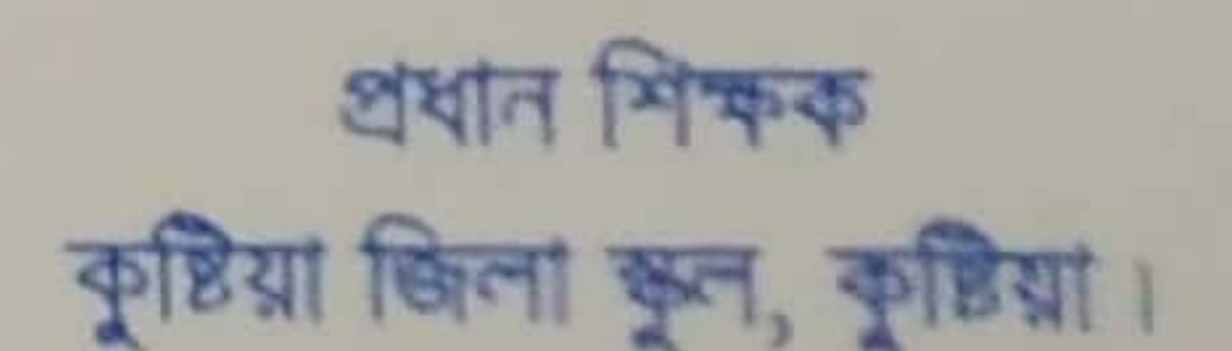 প্রধান শিক্ষক
কুষ্টিয়া জিলা স্কুল, কুষ্টিয়া।